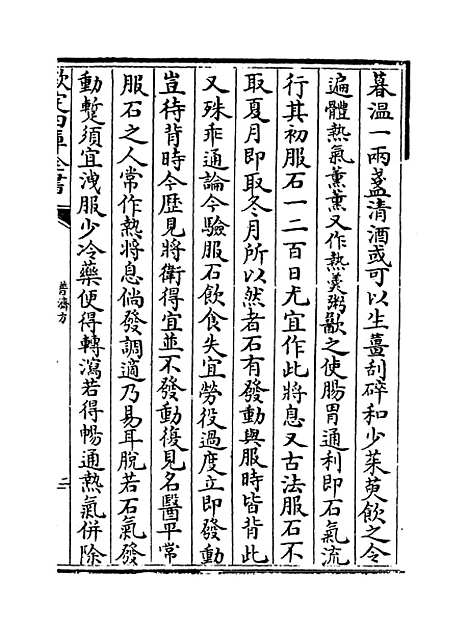 暮温一兩盞清酒或可以生薑刮碎和少茱萸飲之令
遍體熱氣薰薰又作熱羹粥歠之使腸胃通利即石氣流
行其初服石一二百日尤宜作此將息又古法服石不
取夏月即取冬月所以然者石有發動與服時皆背此
又殊乖通論今驗服石飲食失宜勞役過度立即發動
豈待背時今歴見將衛得宜並不發動後見名醫平常
服石之人常作熱將息倘發調適乃易耳脫若石氣發
動蹔須宜洩服少冷藥便得轉瀉若得暢通熱氣併除
欽定四庫全書
普濟方
二